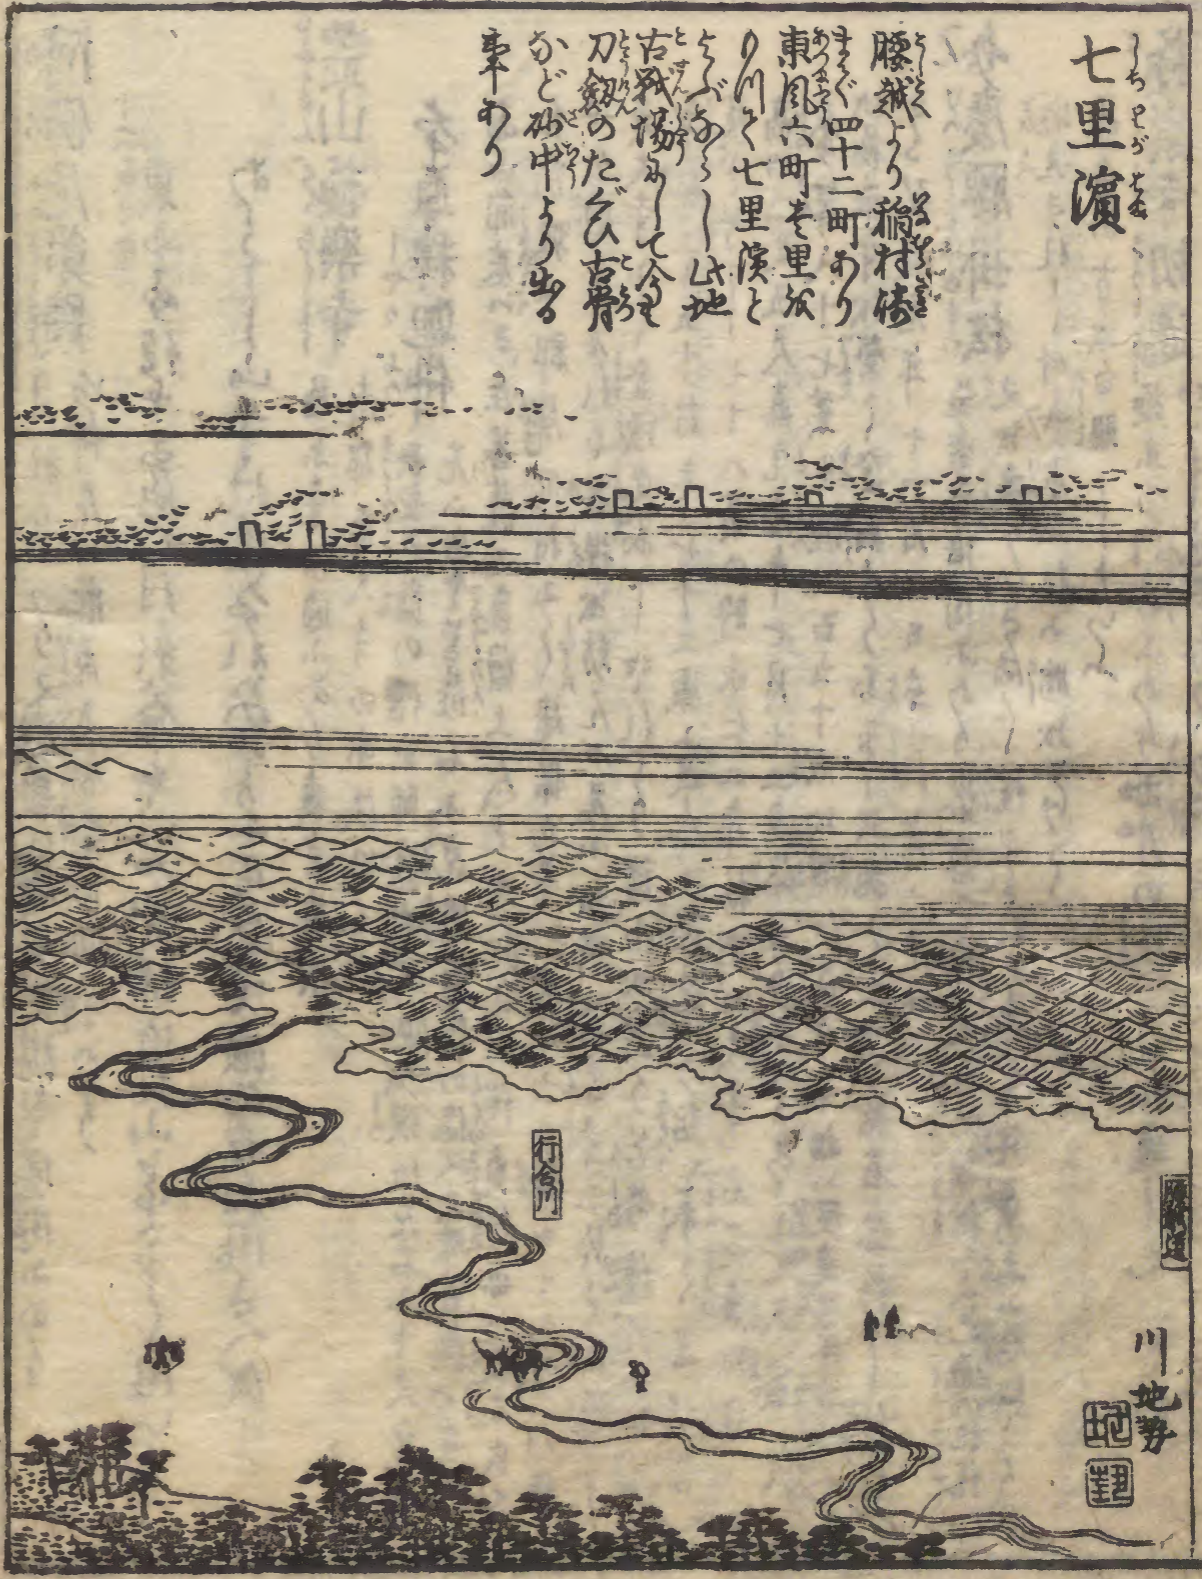 七里濵
しちりがはま
腰越より稲村﨑
まで四十二町あり
東風六町壱里を
もつて七里濵と
よぶならし此地
古戦場にして今も
刀劔のたぐひ古骨
など砂中より出る
事あり
行合川
川地勢